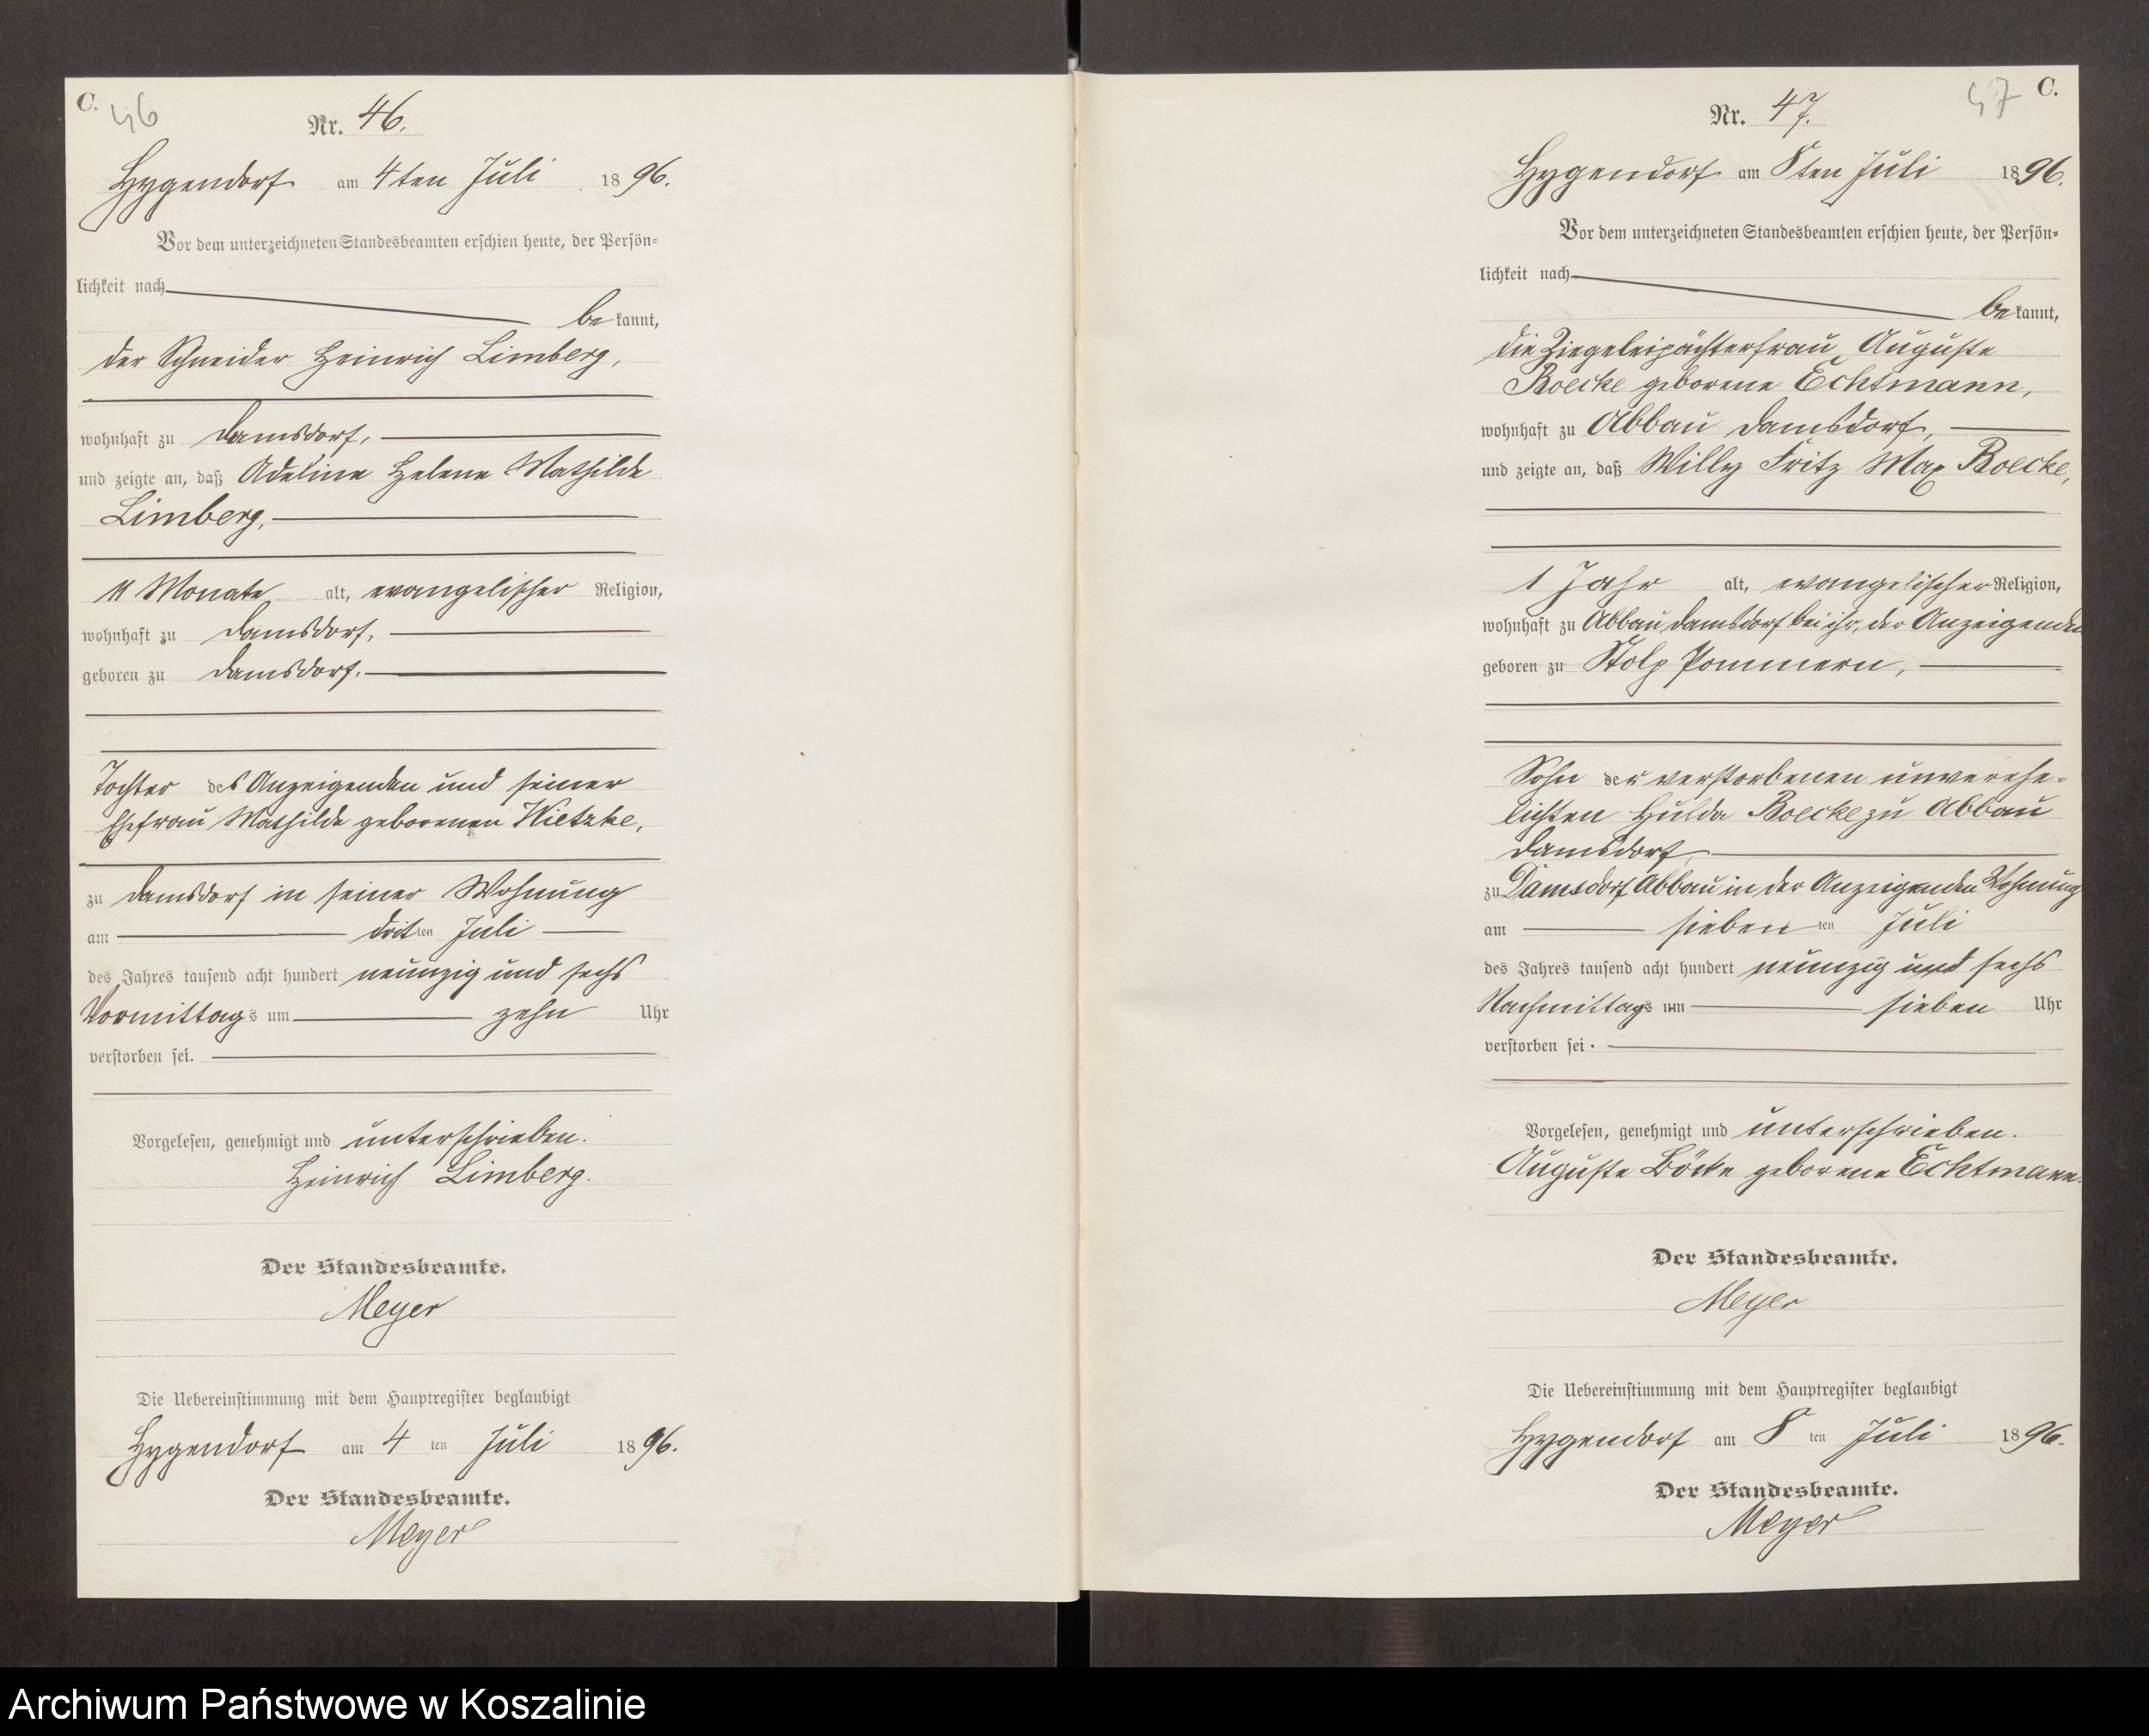 C.
46
Nr. 46.
Hygendorf am 4ten Juli 1896.
Vor dem unterzeichneten Standesbeamten erschien heute, der Persön-
lichkeit nach
be kannt,
der Schneider Heinrich Limberg,
wohnhaft zu Damsdorf,
und zeigte an, daß Adeline Helene Mathilde
Limberg,
11 Monate alt, evangelischer Religion,
wohnhaft zu Damsdorf,
geboren zu Damsdorf.
Tochter des Anzeigenden und seiner
Ehefrau Mathilde geborenen Wietzke,
zu Damsdorf in seiner Wohnung
am dritten Juli
des Jahres tausend acht hundert neunzig und sechs
Vormittags um zehn Uhr
verstorben sei.
Vorgelesen, genehmigt und unterschrieben.
Heinrich Limberg.
Der Standesbeamte.
Meyer
Die Uebereinstimmung mit dem Hauptregister beglaubigt
Hygendorf am 4 ten Juli 1896.
Der Standesbeamte.
Meyer
47 C.
Nr. 47.
Hygendorf am 8ten Juli 1896.
Vor dem unterzeichneten Standesbeamten erschien heute, der Persön-
lichkeit nach
be kannt,
die Ziegeleipächterfrau Auguste
Boecke geborene Echtmann,
wohnhaft zu Abbau Damsdorf,
und zeigte an, daß Willy Fritz Max Boecke,
1 Jahr alt, evangelischer Religion,
wohnhaft zu Abbau Damsdorf bei ihr, der Anzeigenden
geboren zu Stolp Pommern,
Sohn der verstorbenen unverehe-
lichten Hulda Boecke zu Abbau
Damsdorf,
zu Damsdorf Abbau in der Anzeigenden Wohnung
am siebenten Juli
des Jahres tausend acht hundert neunzig und sechs
Nachmittags um sieben Uhr
verstorben sei.
Vorgelesen, genehmigt und unterschrieben.
Auguste Böcke geborene Echtmann.
Der Standesbeamte.
Meyer
Die Uebereinstimmung mit dem Hauptregister beglaubigt
Hygendorf am 8 ten Juli 1896.
Der Standesbeamte.
Meyer
Archiwum Państwowe w Koszalinie